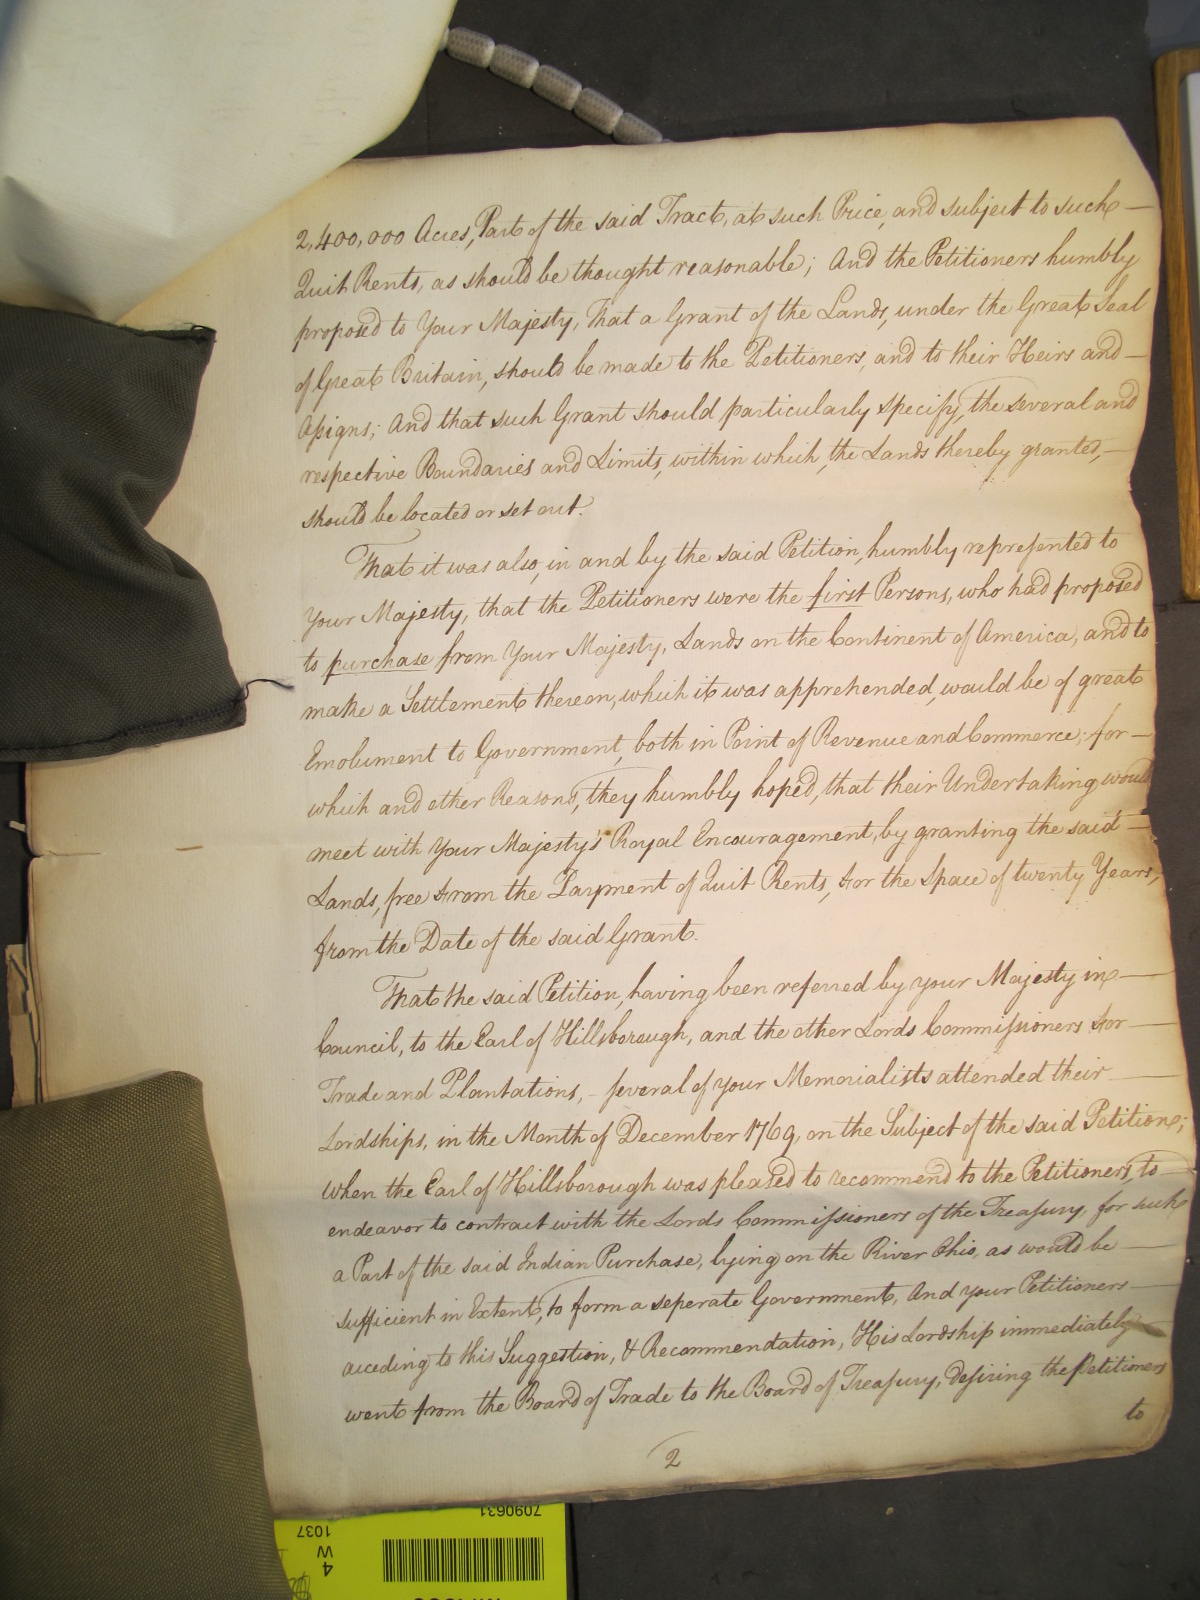 2,400,000 Acres, Part of the said Tract, at such Price, and subject to such —
Quit Rents, as should be thought reasonable; And the Petitioners humbly
proposed to Your Majesty, That a Grant of the Lands, under the Great Seal
of Great Britain, should be made to the Petitioners, and to their Heirs and —
Assigns; And that such Grant should particularly specify, the several and
respective Boundaries and Limits, within which, the Lands thereby granted, —
should be located or set out.
That it was also, in and by the said Petition, humbly represented to
Your Majesty, that the Petitioners were the first Persons, who had proposed
to purchase from Your Majesty, Lands on the Continent of America, and to
make a Settlement thereon, which it was apprehended, would be of great
Emolument to Government, both in Point of Revenue and Commerce; for —
which and other Reasons, they humbly hoped, that their Undertaking would
meet with Your Majesty's Royal Encouragement, by granting the said —
Lands, free from the Payment of Quit Rents, for the Space of twenty Years,
from the Date of the said Grant.
That the said Petition, having been referred by your Majesty in —
Council, to the Earl of Hillsborough, and the other Lords Commissioners for —
Trade and Plantations, – several of your Memorialists attended their —
Lordships, in the Month of December 1769, on the Subject of the said Petition;
when the Earl of Hillsborough was pleased to recommend to the Petitioners, to —
endeavor to contract with the Lords Commissioners of the Treasury, for such
a Part of the said Indian Purchase, lying on the River Ohio, as would be —
sufficient in Extent, to form a seperate Government, And your Petitioners —
acceding to this Suggestion, & Recommendation, His Lordship immediately
went from the Board of Trade to the Board of Treasury, desiring the Petitioners
to
2
7090631
4
W
1037